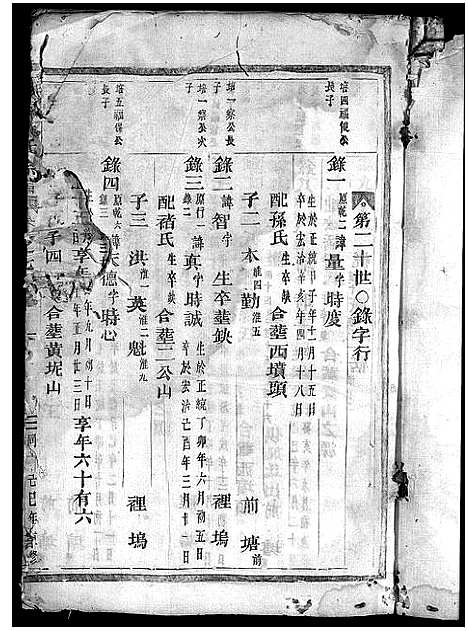 第二十世〇錄字行
培四福德公長子
錄一 原乾二 諱量字時度
生於正統甲子年十一月十五日
卒於宏治辛亥年四月十八日
配孫氏 生卒缺 合塟西墳頭 前塘前
子二 木淮四 勤淮五
培一察公長子
錄二 諱智字 生卒塟缺 裡塢
培一察公次子
錄三 原行一 錄二 諱真字時誠
生於正統丁卯年六月初五日
卒於宏治己酉年三月十一日
配褚氏 生卒缺 合塟二公山 裡塢
子三 洪淮一 英淮二 魁淮九
培五福保公長子
錄四 原乾六 諱天德字時心
年九月初十日
年五月廿三日 享年六十有六
享年
子四 合塟黃坭山
己巳年